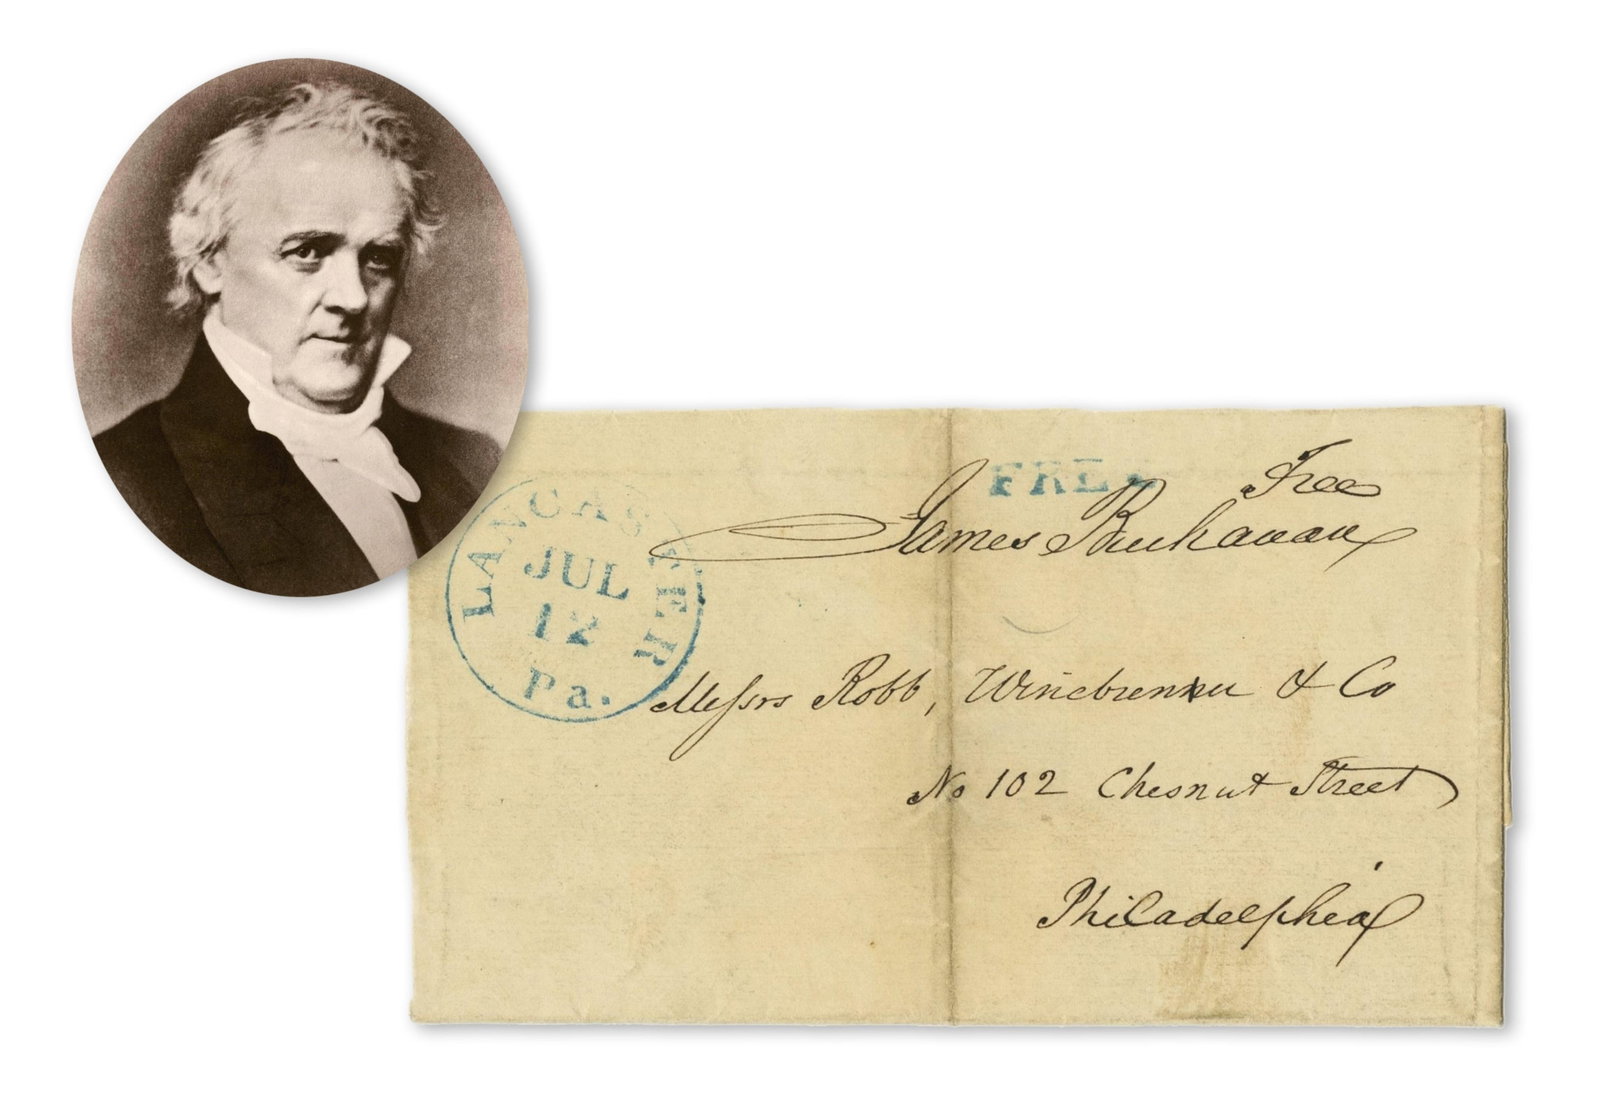 FREE
Free
James Buchanan
LANCASTER
JUL
12
Pa.
Messrs Robb, Winebrenner & Co
No 102 Chesnut Street
Philadelphia